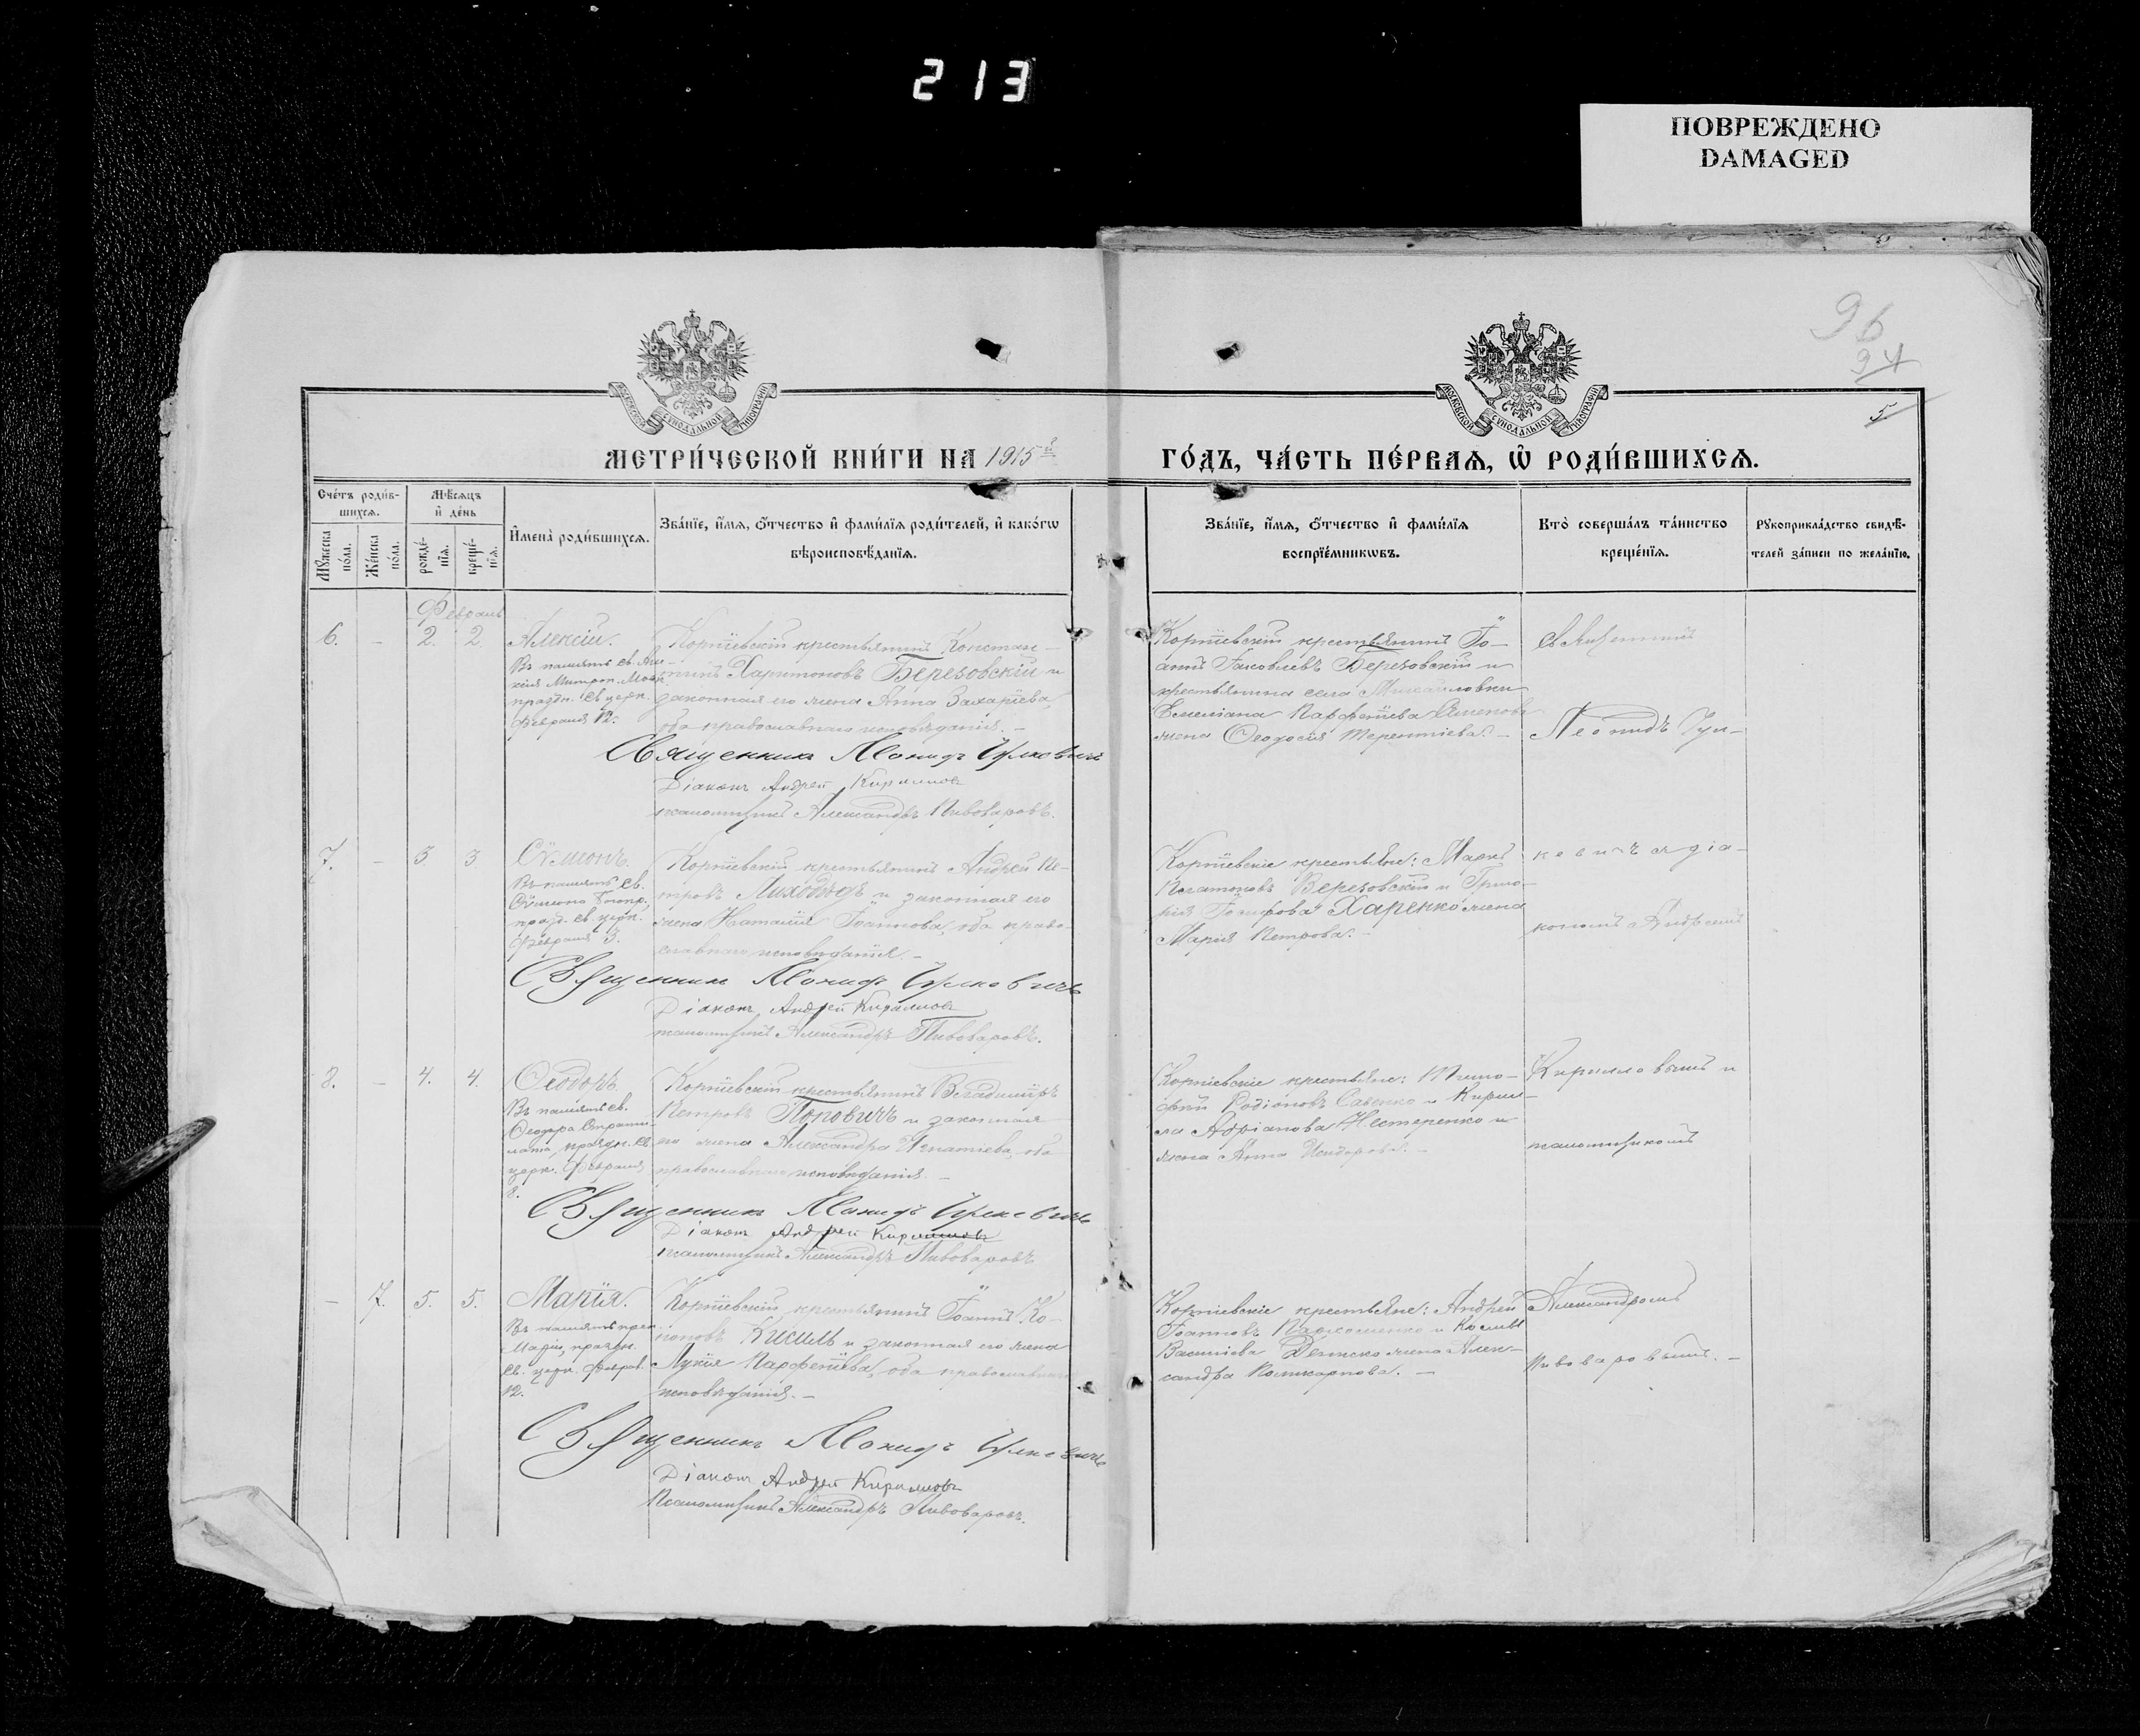 213
ПОВРЕЖДЕНО
DAMAGED
96
94
5
МОСКОВСКОЙ СѴНОДАЛЬНОЙ ТИПОГРАФІИ
МОСКОВСКОЙ СѴНОДАЛЬНОЙ ТИПОГРАФІИ
МЕТРИ́ЧЕСКОЙ КНИ́ГИ НА 1915й
ГО́ДЪ, ЧА́СТЬ ПЕ́РВАЯ, Ѡ҆ РОДИ́ВШИХСЯ.
Сче́тъ роди́в-
шихся.
Мꙋ́жеска по́ла.
Же́нска по́ла.
Мѣ́сяцъ
и҆ де́нь
рожде́-
нїя.
креще́-
нїя.
И҆мена̀ роди́вшихся.
Зва́нїе, и҆́мя, ѻ҆́тчество и҆ фами́лїя роди́телей, и҆ како́гѡ
вѣроисповѣ́данїя.
Зва́нїе, и҆́мя, ѻ҆́тчество и҆ фами́лїя
воспрїе́мникѡвъ.
Кто̀ соверша́лъ та́инство
креще́нїя.
Рꙋкоприкла́дство свидѣ́-
телей за́писи по жела́нїю.
Февраль
6. - 2. 2
Алексій.
Въ память св. Але-
ксія Митроп. Моск.
праздн. св. церк.
Февраля 12.
Корніевскій крестьянинъ Констан-
тинъ Харитоновъ Березовскій и
законная его жена Анна Захаріева,
оба православнаго исповѣданія. -
Священникъ Леонидъ
Діаконъ Андрей Кирилловъ
псаломщикъ Александръ Пивоваровъ.
Корніевскій крестьянинъ Іо-
аннъ Іаковлевъ Березовскій и
крестьянина села Михайловки
Емеліана Парфеніева
жена Ѳеодосія Терентіева. -
Священникъ
Леонидъ
7. - 3. 3
Сѵмеонъ.
Въ память св.
Сѵмеона Богопр.,
празд. св. церк.
Февраля 3.
Корніевскій крестьянинъ Андрей Пе-
тровъ Лиходѣдъ и законная его
жена Наталія Іоаннова, оба право-
славнаго исповѣданія. -
Священникъ Леонидъ
Діаконъ Андрей Кирилловъ
псаломщикъ Александръ Пивоваровъ.
Корніевскіе крестьяне: Маркъ
Платоновъ Березовскій и Григо-
рія Іосифова Харенко жена
Марія Петрова. -
кевичъ съ діа-
кономъ Андреемъ
8. - 4. 4.
Ѳеодоръ.
Въ память св.
Ѳеодора Страти-
лата, праздн. св.
церк. Февраля
8.
Корніевскій крестьянинъ Владиміръ
Петровъ Поповичъ и законная
его жена Александра Игнатіева, оба
православнаго исповѣданія. -
Священникъ Леонидъ
Діаконъ Андрей Кирилловъ
псаломщикъ Александръ Пивоваровъ
Корніевскіе крестьяне: Тимо-
фей Родіоновъ Савенко и Кирил-
ла Адріанова Нестеренко
жена Анна Исидорова. -
Кирилловымъ и
псаломщикомъ
- 7. 5. 5.
Марія.
Въ память преп.
Маріи, праздн.
св. церк. Феврал.
12.
Корніевскій крестьянинъ Іоаннъ Ко-
ноновъ Кисиль и законная его жена
Лукія Парфеніева, оба православнаго
исповѣданія. -
Священникъ Леонидъ
Діаконъ Андрей Кирилловъ
Псаломщикъ Александръ Пивоваровъ.
Корніевскіе крестьяне: Андрей
Іоанновъ Пархоменко и Космы
Василіева жена Алек-
сандра Поликарпова. -
Александромъ
Пивоваровымъ. -